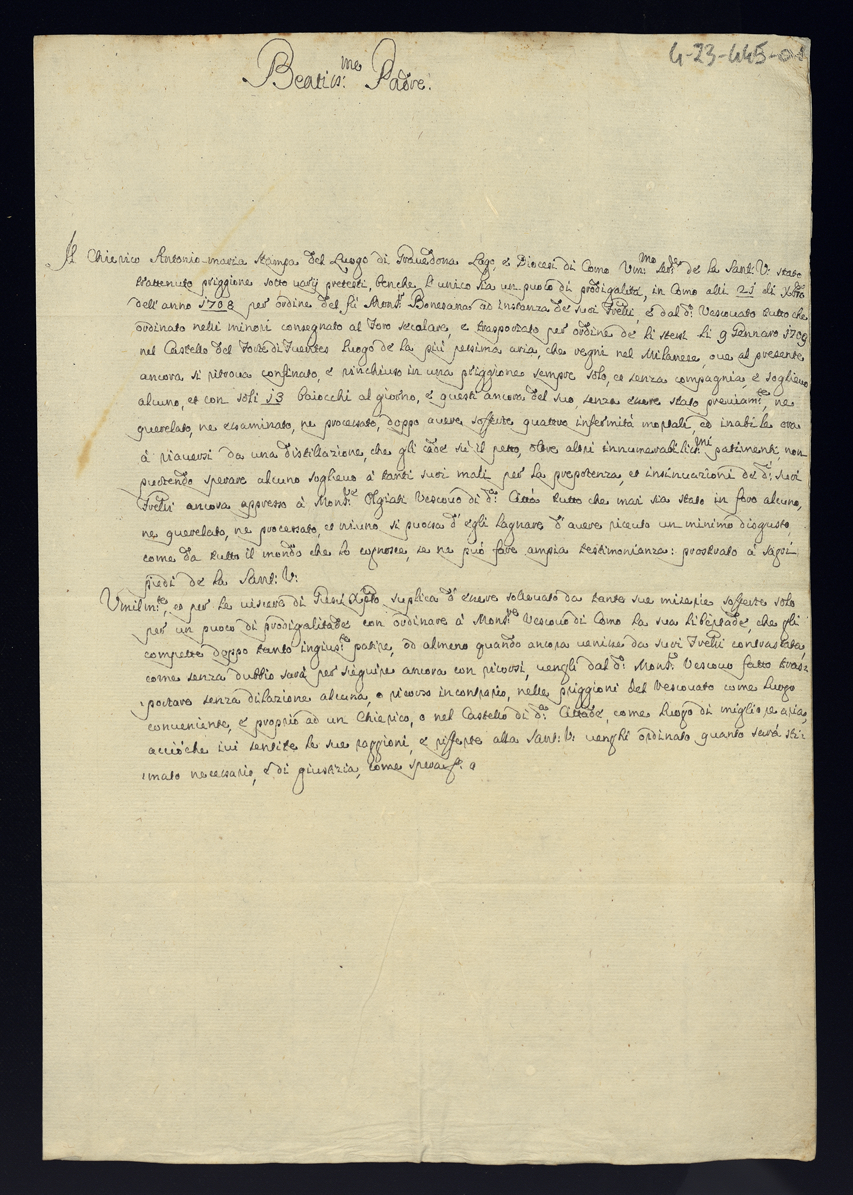 4-23-445-01
Beatis:me Padre.
Il Chierico Antonio-maria Stampa del Luogo di Gravedona Lago, e Diocesi di Como Vmi:mo Ser:re de la Sant: V: stato
trattenuto priggione sotto varij pretesti, benche l'unico sia un puoco di prodigalità, in Como alli 21 di Xbro
dell'anno 1708 per ordine del fù Mons:r Bonesana ad instanza de suoi Frelli, e dal d:o Vescovato tutto che
ordinato nelli minori consegnato al Foro secolare, e trasportato per ordine de li stessi li 9 Gennaro 1709
nel Castello del Forte di Fuentes Luogo de la più pessima aria, che vegni nel Milanese, ove al presente
ancora si ritrova confinato, e rinchiuso in una priggione sempre solo, et senza compagnia, e soglievo
alcuno, et con soli 13 baiocchi al giorno, e questi ancora del suo, senza essere stato previam:te, ne
querelato, ne essaminato, ne processato, doppo avere sofferte quattro infermità mortali, ed inabile ora
à riaversi da una distillazione, che gli cade sù il petto, oltre altri innumerabilis:mi patimenti, non
puotendo sperare alcuno soglievo à tanti suoi mali per la prepotenza, et insinuazioni de d:i suoi
Frelli ancora appresso à Mons:re Olgiati Vescovo di d:a Città tutto che mai sia stato in foro alcuno,
ne querelato, ne processato, et niuno si puossa d'egli lagnare d'avere riceuto un minimo disgusto,
come da tutto il mondo che lo cognosce, se ne può fare ampia testimonianza: prostrato a sagri
piedi de la Sant: V:
Vmilm:te, et per le viscere di Giesù Xpto suplica d'essere sollevato da tante sue miserie sofferte solo
per un puoco di prodigalitade con ordinare à Mons:re Vescovo di Como la sua libertade, che gli
compette doppo tanto ingius:te patire, od almeno quando ancora venisse da suoi Frelli contrastata,
come senza dubbio sarà per sieguire ancora con ricorsi, vengli dal d:o Mons:r Vescovo fatto tras:
:portare senza dilazione alcuna, o ricorso incontrario, nelle priggioni del Vescovato come luogo
conveniente, e proprio ad un Chierico, o nel Castello di d:a Cittade, come luogo di migliore aria,
acciò che ivi sentite le sue raggioni, e rifferte alla Sant: V: venghi ordinato quanto sarà sti:
:mato necessario, e di giustizia, come spera